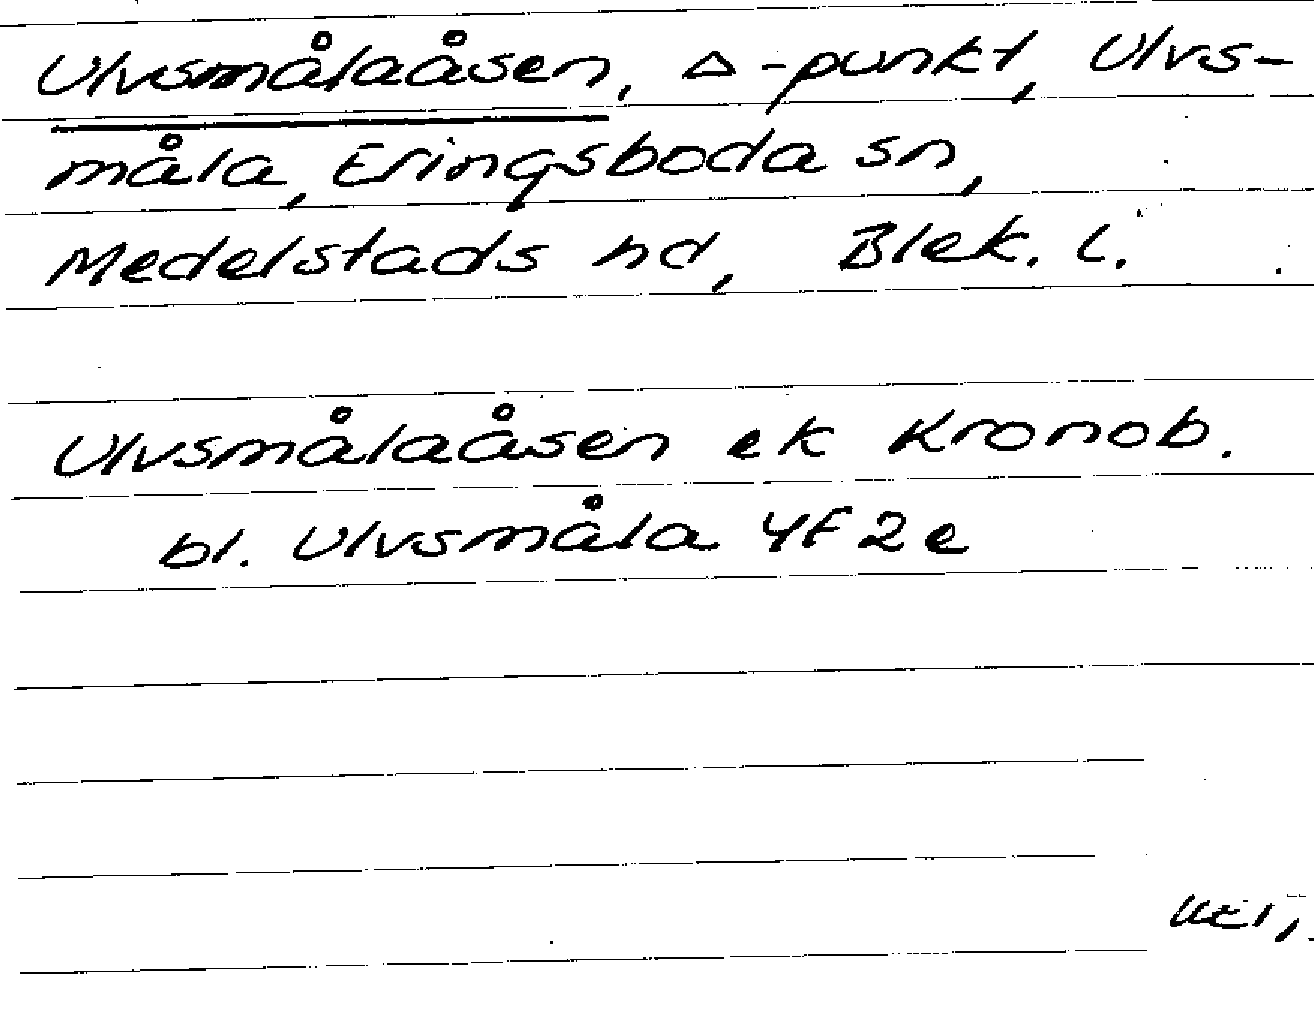 Ulvsmålaåsen, △-punkt, Ulvs-
måla, Eringsboda sn,
Medelstads hd, Blek. l.
Ulvsmålaåsen ek Kronob.
bl. Ulvsmåla 4F 2e